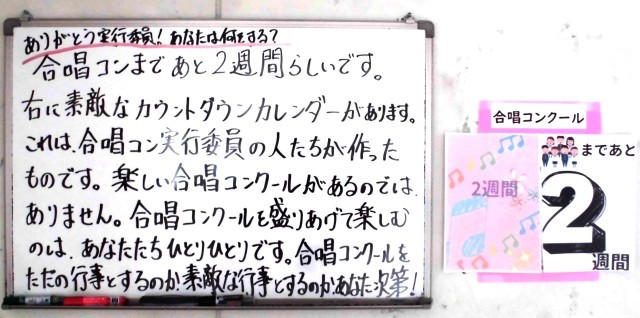 ありがとう実行委員！あなたは何をする？
合唱コンまであと２週間らしいです。
右に素敵なカウントダウンカレンダーがあります。
これは、合唱コン実行委員の人たちが作った
ものです。楽しい合唱コンクールがあるのでは
ありません。合唱コンクールを盛りあげて楽しむ
のは、あなたたちひとりひとりです。合唱コンクールを
ただの行事とするのか素敵な行事とするのかあなた次第！
合唱コンクール
まであと
2週間
2
週間